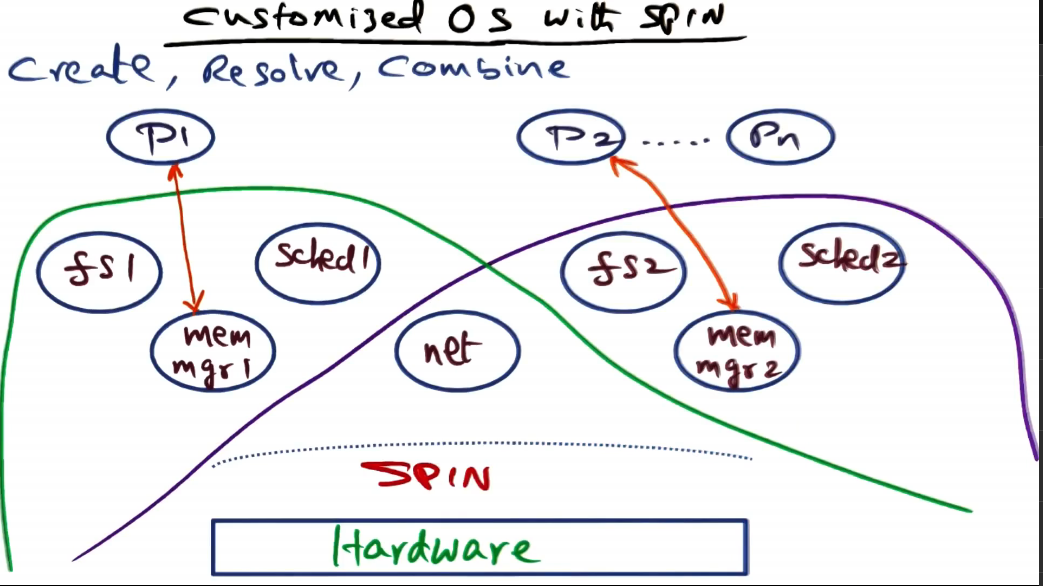 Customized OS with SPIN
Create, Resolve, Combine
P1
P2 ..... Pn
fs1
sched1
fs2
sched2
mem
mgr1
net
mem
mgr2
SPIN
Hardware